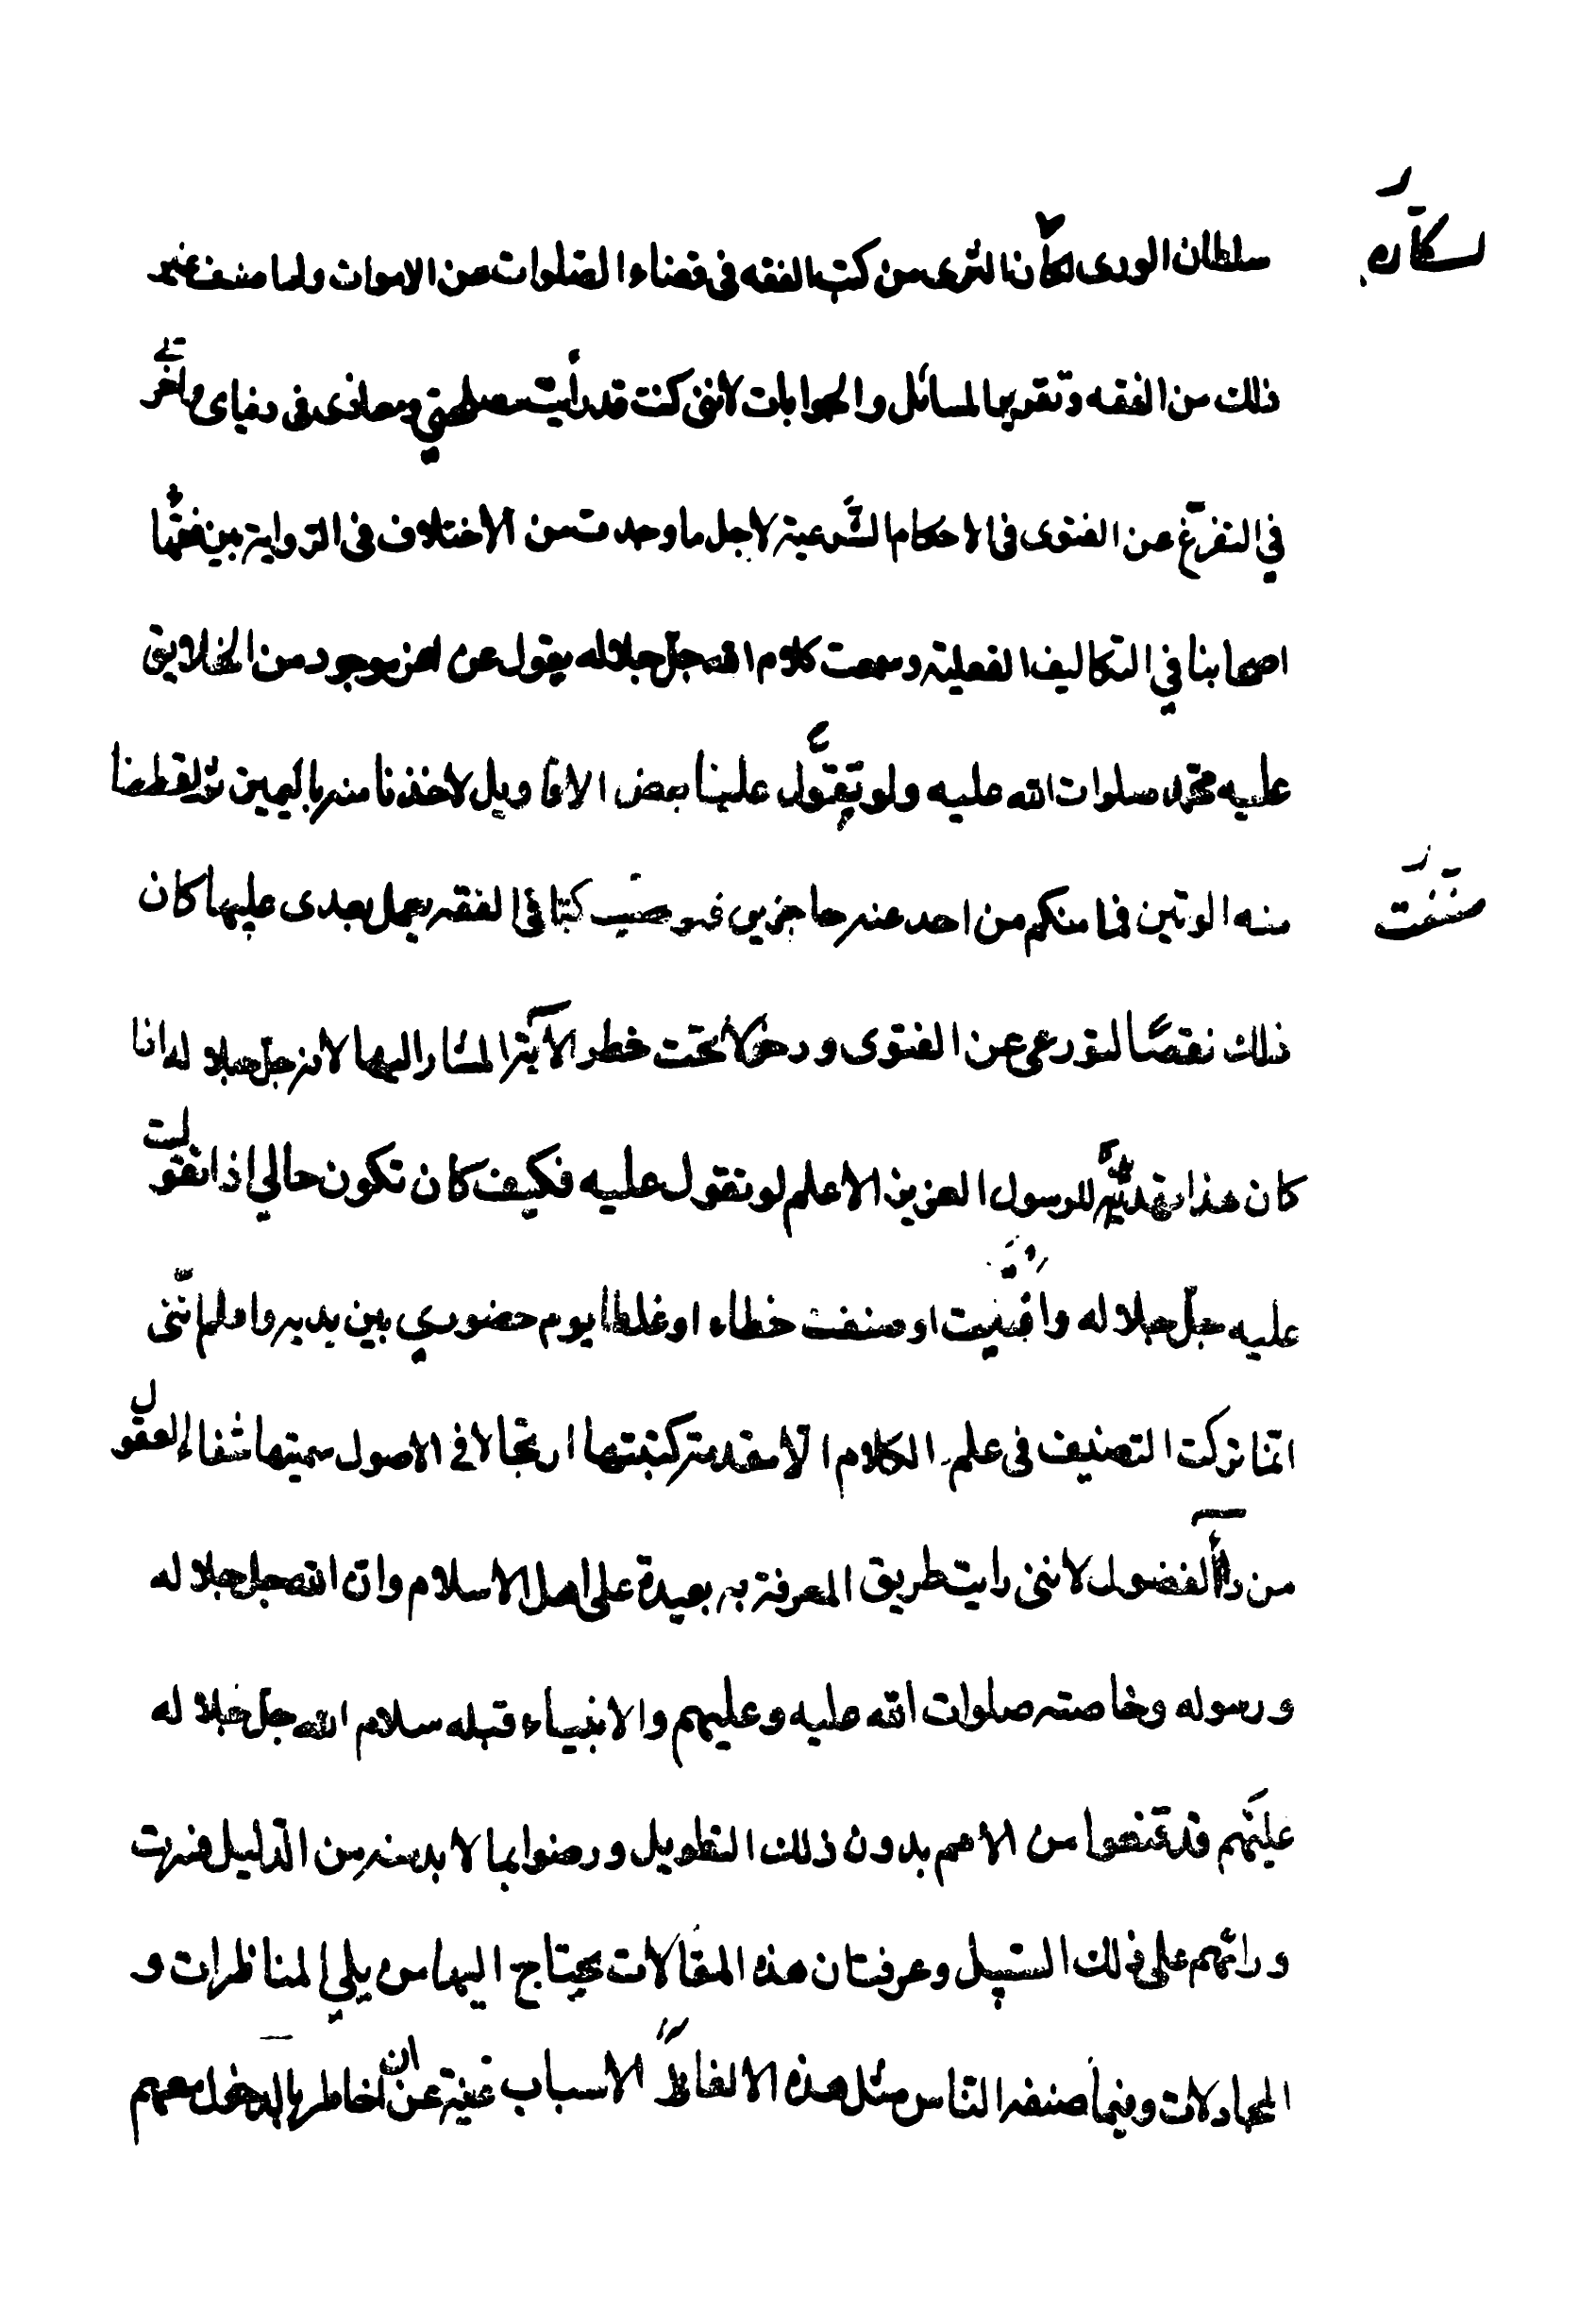 سلطان الورى لسكان الثرى من كتب الفقه فى قضاء الصلوات عن الاموات ولما صنف غير
ذلك من الفقه وتقرير المسائل والجوابات لانني كنت قد رأيت مصلحتي ومعاذى فى دنياى واخرتي
في التفرغ عن الفتوى فى الاحكام الشرعية لاجل ما وجدت من الاختلاف فى الرواية بين فقهاء
اصحابنا في التكاليف الفعلية وسمعت كلام الله جل جلاله يقول عن اعز موجود من الخلايق
عليه محمد صلوات الله عليه ولو تقول علينا بعض الاقاويل لاخذنا منه باليمين ثم لقطعنا
منه الوتين فما منكم من احد عنه حاجزين فلو صنفت كتبا فى الفقه يعمل بعدى عليها كان
صنفت
ذلك نقضا لتورعى عن الفتوى ودخولا تحت خطر الآية المشار اليها لانه جل جلاله اذا
كان هذا تهديده للرسول العزيز الاعلم لو تقول عليه فكيف كان تكون حالي اذا تقولت
عليه جل جلاله وافتيت او صنفت خطاء او غلطا يوم حضوري بين يديه واعلم انني
انما تركت التصنيف فى علم الكلام الا مقدمة كتبتها ارتجالا في الاصول سميتها شفاء العقول
من داء الفضول لانني رايت طريق المعرفة به بعيدة على اهل الاسلام وان الله جل جلاله
ورسوله وخاصته صلوات الله عليه وعليهم والانبياء قبله سلام الله جل جلاله
عليهم قد قنعوا من الامم بدون ذلك التطويل ورضوا بما لا بد منه من الدليل فسرت
ورائهم على ذلك السبيل وعرفت ان هذه المقالات يحتاج اليها من يلي المناظرات و
المجادلات وفيما صنفه الناس مثل هذه الالفاظ الاسباب غنية عن ان اخاطر بالدخول معهم